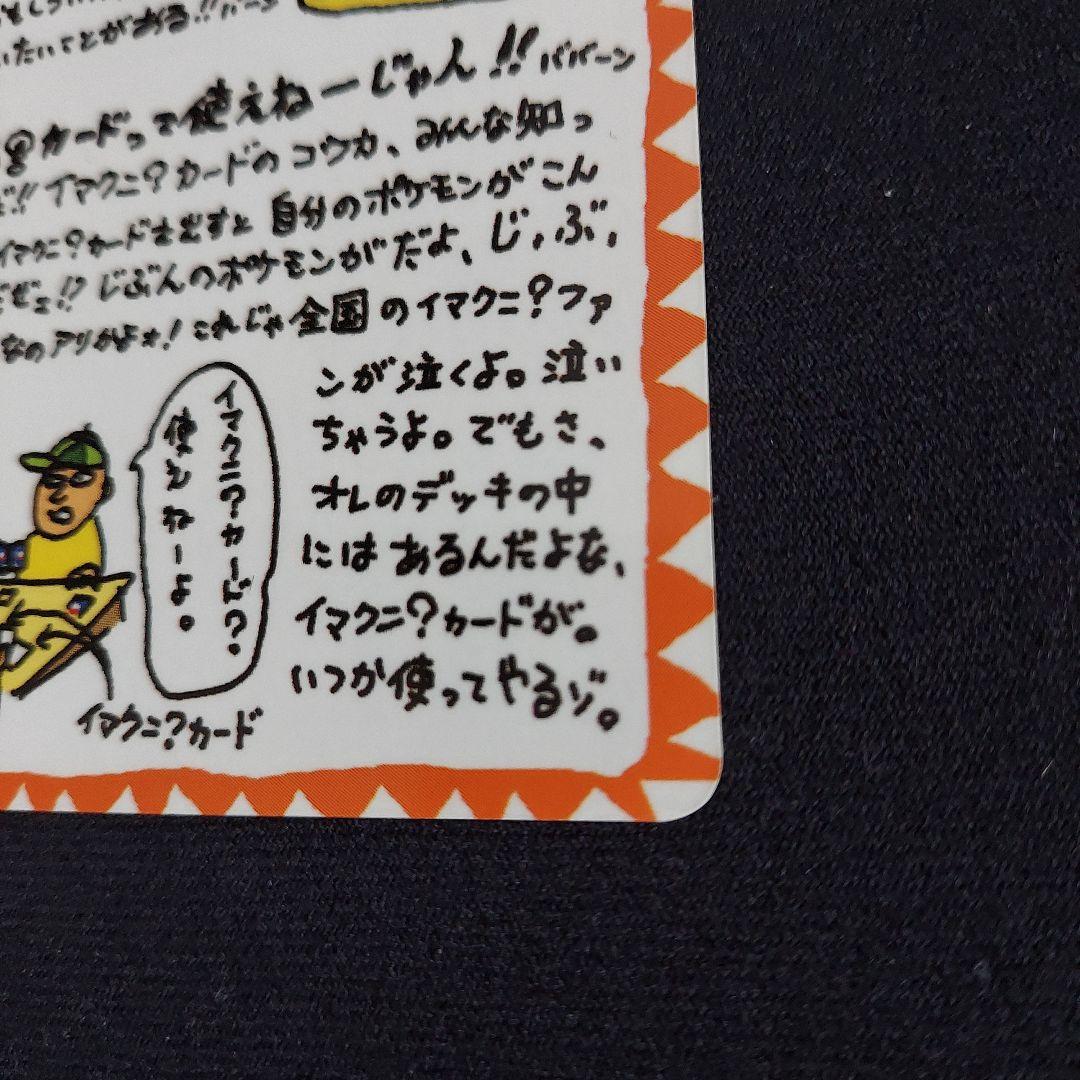 いたいことがある!!バーン
カードって使えねーじゃん!!ババーン
!!イマクニ?カードのコウカ、みんな知っ
イマクニ?カードを出すと自分のポケモンがこん
だぜェ!?じぶんのポケモンがだよ、じ、ぶ、
なのアリかよォ!これじゃ全国のイマクニ?ファ
ンが泣くよ。泣い
ちゃうよ。でもさ、
オレのデッキの中
にはあるんだよな、
イマクニ?カードが。
いつか使ってやるゾ。
イマクニ?カード?
使えねーよ。
イマクニ?カード